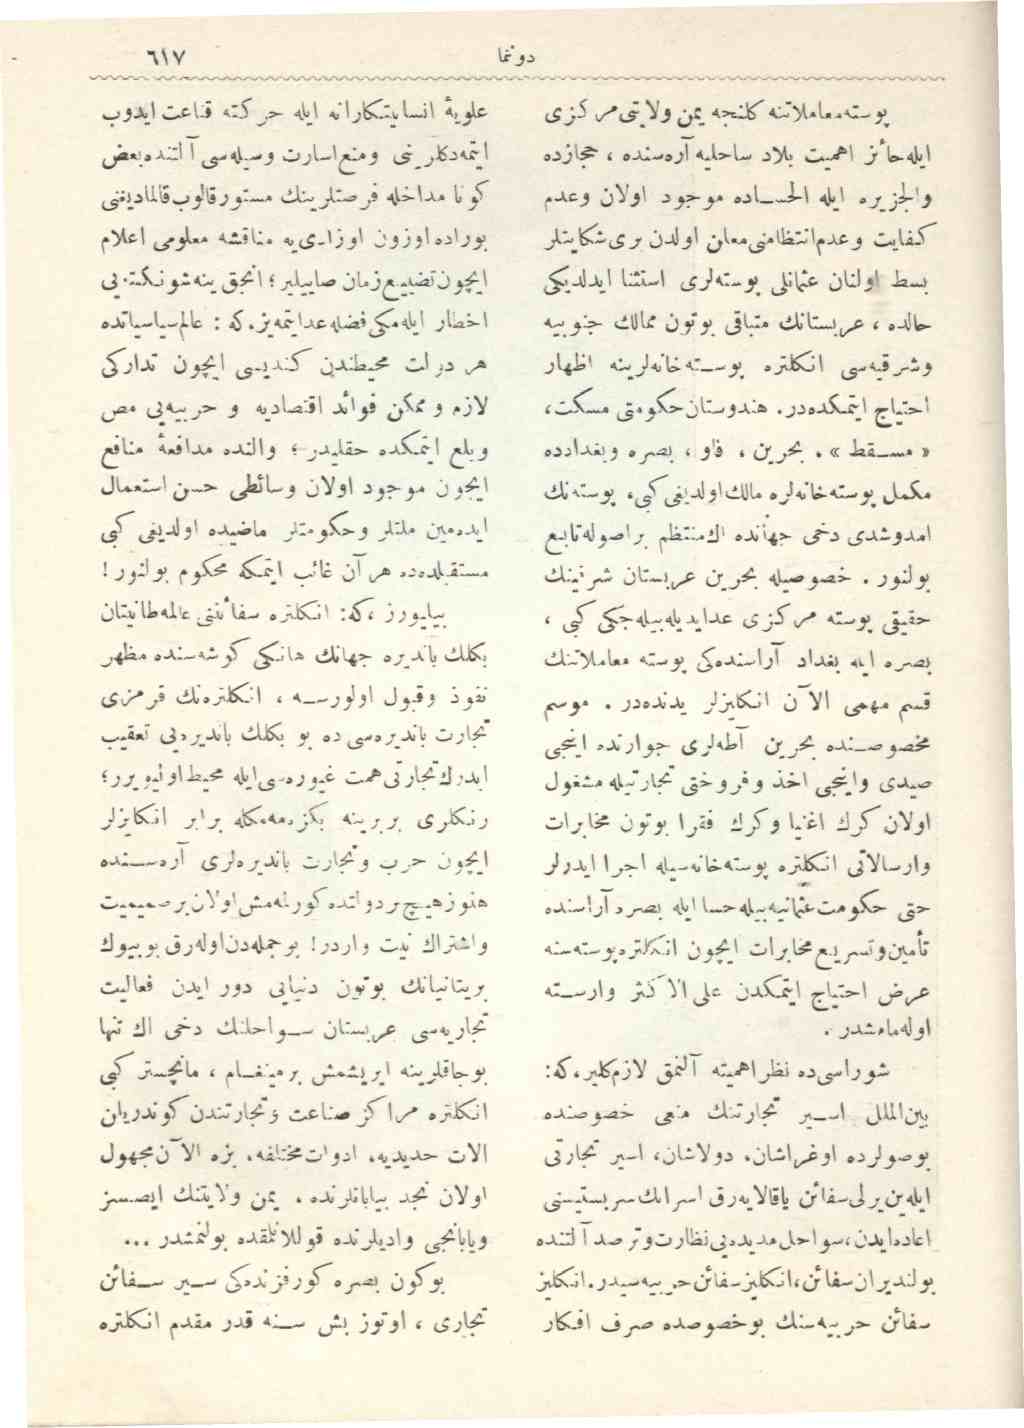 دونما
٦١٧
پوسته معاملاتنه كلنجه يمن ولايتی مركزی
ايله حائز اهميت بلاد ساحليه آره سنده ، حجازده
والجزيره ايله الحساده موجود اولان وعدم
كفايت وعدم انتظامنی معان اولدن بری شكايتلر
بسط اولنان عثمانلی پوسته لری استثنا ايدلديكی
حالده ، عربستانك متباقی بوتون ممالك جنوبيه
وشرقيه سی انكلتره پوسته خانه لرينه اظهار
احتياج ايتمكده در. هندوستان حكومتی مسكت،
« مسقط » . بحرين ، فاو ، بصره وبغدادده
مكمل پوسته خانه لره مالك اولديغی كبی، پوسته نك
امدوشدی دخی جهانده اك منتظم بر اصوله تابع
بولنور . خصوصيله بحرين عربستان شرقينك
حقيقی پوسته مركزی عدايديله بيله جكی كبی ،
بصره ايله بغداد آراسنده كی پوسته معاملاتنك
قسم مهمی الآن انكليزلر يدنده در . موسم
مخصوصنده بحرين آطه لری جوارنده اينجی
صيدی واينجی اخذ وفروختی تجارتيله مشغول
اولان كرك اغنيا وكرك فقرا بوتون مخابرات
وارسالاتی انكلتره پوسته خانه سيله اجرا ايدرلر
حتی حكومت عثمانيه بيله حسا ايله بصره آراسنده
تأمين وتسريع مخابرات ايچون انكلتره پوسته سنه
عرض احتياج ايتمكدن علی الاكثر وارسته
اوله مامشدر .
شوراسی ده نظر اهميته آلنمق لازم كلير، كه:
بين الملل اسير تجارتنك منعی خصوصنده
بوصولرده اوغراشان، دولاشان، اسير تجارتی
ايله ين يرلی سفائن ياقالايه رق اسرانك سربستيسنی
اعاده ايدن، سواحل مديده يی نظارت وترصد آلتنده
بولنديران سفائن، انكليز سفائن حربيه سيدر. انكليز
سفائن حربيه سنك بوخصوصده صرف افكار
علويهٔ انسانيتكارانه ايله حركته قناعت ايدوب
ايتمه دكلرينی ومنع اسارت وسيله سی آلتنده بعض
كونا مداخله فرصتلرينك مستور قالوب قالماديغنی
بوراده اوزون اوزادی يه مناقشه معلومی اعلام
ايچون تضييع زمان صاييلير ؛ آنجق ينه شو نكته يی
اخطار ايله مكی فضله عدايتمه يز، كه : عالم سياسياتده
هر دولت محيطندن كنديسی ايچون تداركی
لازم و ممكن فوائد اقتصاديه و حربيه يی مص
وبلع ايتمكده حقليدر ؛ والنده مدافعهٔ منافع
ايچون موجود اولان وسائطی حسن استعمال
ايده مين ملتلر وحكومتلر ماضيده اولديغی كبی
مستقبلده ده هر آن غائب ايتمكه محكوم بولنور!
بيليورز ، كه: انكلتره سفائننی عالمه طانيتان
بكلك بانديره جهانك هانكی كوشه سنده مظهر
نفوذ وقبول اولورسه ، انكلتره نك قرمزی
تجارت بانديره سی ده بو بكلك بانديره يی تعقيب
ايدرك تجارتی همت غيوره سی ايله محيط اوليويرر؛
رنكلری بربرينه بكزه مه مكله برابر انكليزلر
ايچون حرب وتجارت بانديره لری آره سنده
هنوز هيچ بر دولتده كورلمه مش اولان بر صميميت
واشتراك نيت واردر! بوجمله دن اوله رق بو بيوك
بريتانيانك بوتون دنيايی دور ايدن فعاليت
تجاريه سی عربستان سواحلنك دخی اك تنها
بوجاقلرينه ايريشمش برمينغام ، مانچستر كبی
انكلتره مراكز صناعت و تجارتندن كوندريلن
الات حديديه، ادوات مختلفه، بزه الآن مجهول
اولان نجد بيابانلرنده ، يمن ولايتنك ايصسز
ويابانجی واديلرنده قوللانلمقده بولنمشدر ...
بوكون بصره كورفزنده كی سير سفائن
تجاری ، اوتوز بش سنه قدر مقدم انكلتره